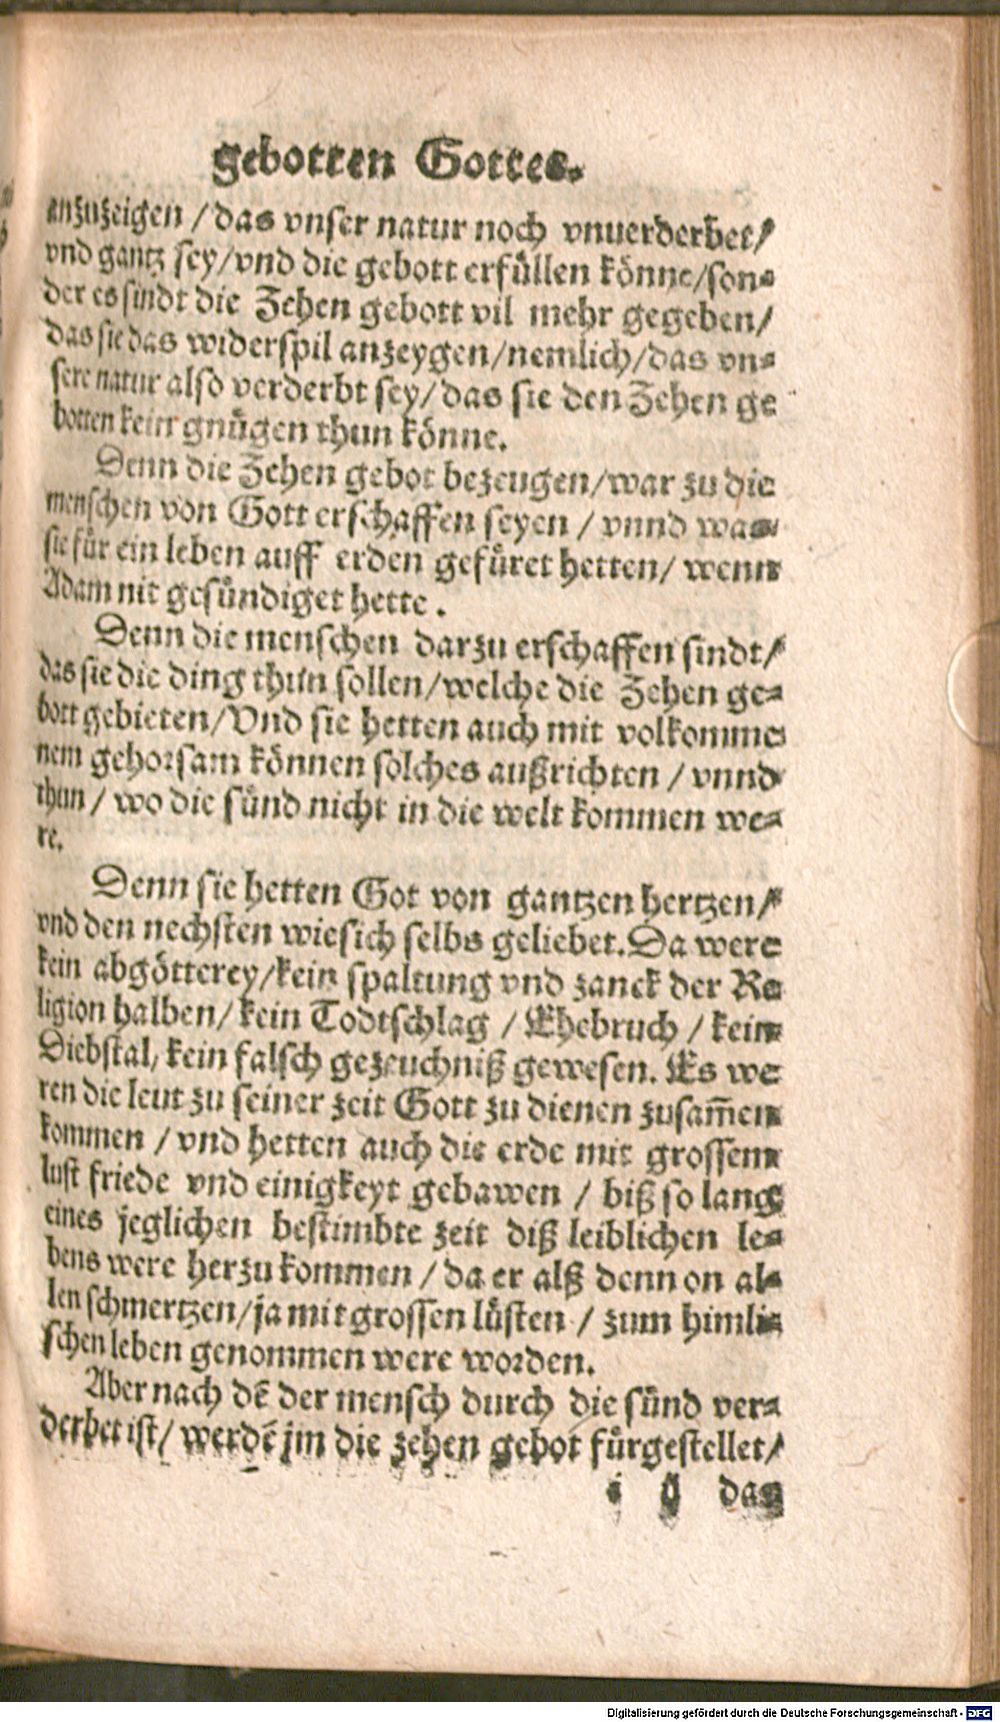 gebotten Gottes.
anzuzeigen / das vnser natur noch vnuerderbet /
vnd gantz sey / vnd die gebott erfüllen könne / son⸗
der es sindt die Zehen gebott vil mehr gegeben /
das sie das widerspil anzeygen / nemlich / das vn⸗
sere natur also verderbt sey / das sie den Zehen ge
botten kein gnügen thun könne.
Denn die Zehen gebot bezeugen / war zu die
menschen von Gott erschaffen seyen / vnnd was
sie für ein leben auff erden gefüret hetten / wenn
Adam nit gesündiget hette.
Denn die menschen darzu erschaffen sindt /
das sie die ding thun sollen / welche die Zehen ge⸗
bott gebieten / Vnd sie hetten auch mit volkomme
nem gehorsam können solches außrichten / vnnd
thun / wo die sünd nicht in die welt kommen we⸗
re.
Denn sie hetten Got von gantzen hertzen /
vnd den nechsten wie sich selbs geliebet. Da were
kein abgötterey / kein spaltung vnd zanck der Re
ligion halben / kein Todtschlag / Ehebruch / kein
Diebstal / kein falsch gezeuchniß gewesen. Es we
ren die leut zu seiner zeit Gott zu dienen zusam̃en
kommen / vnd hetten auch die erde mit grossem
lust friede vnd einigkeyt gebawen / biß so lang
eines jeglichen bestimbte zeit diß leiblichen le⸗
bens were herzu kommen / da er alß denn on al⸗
len schmertzen / ja mit grossen lüsten / zum himli⸗
schen leben genommen were worden.
Aber nach dẽ der mensch durch die sünd ver⸗
derbet ist / werdẽ jm die zehen gebot fürgestellet /
i ij das
Digitalisierung gefördert durch die Deutsche Forschungsgemeinschaft - DFG